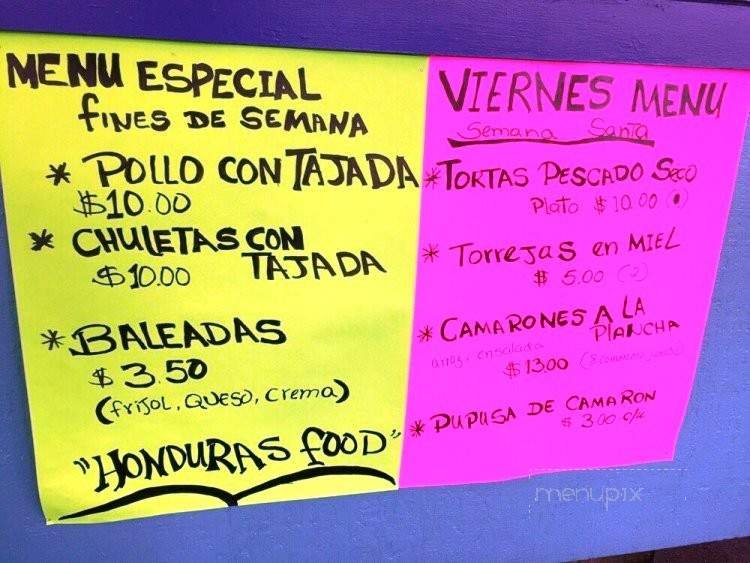 MENU ESPECIAL
fiNES DE SEMANA
* POLLO CON TAJADA
$10.00
* CHULETAS CON
TAJADA
$10.00
* BALEADAS
$3.50
(frijol, QUESO, crema)
"HONDURAS fOOD"
VIERNES MENU
Semana Santa
* TORTAS PESCADO SECO
Plato $10.00
* Torrejas en MIEL
$ 5.00 (2)
* CAMARONES A LA
PLANCHA
arroz, ensalada
$13.00
* PUPUSA DE CAMARON
$ 3.00 c/u
menupix